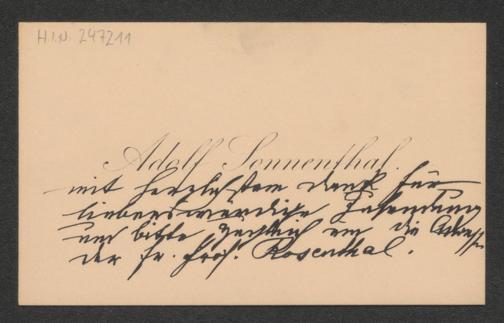 H.I.N. 247211
Adolf Sonnenthal.
mit herzlichstem Dank für
liebenswürdige Zusendung
und bitte um die Adresse
der Fr. Prof. Rosenthal.